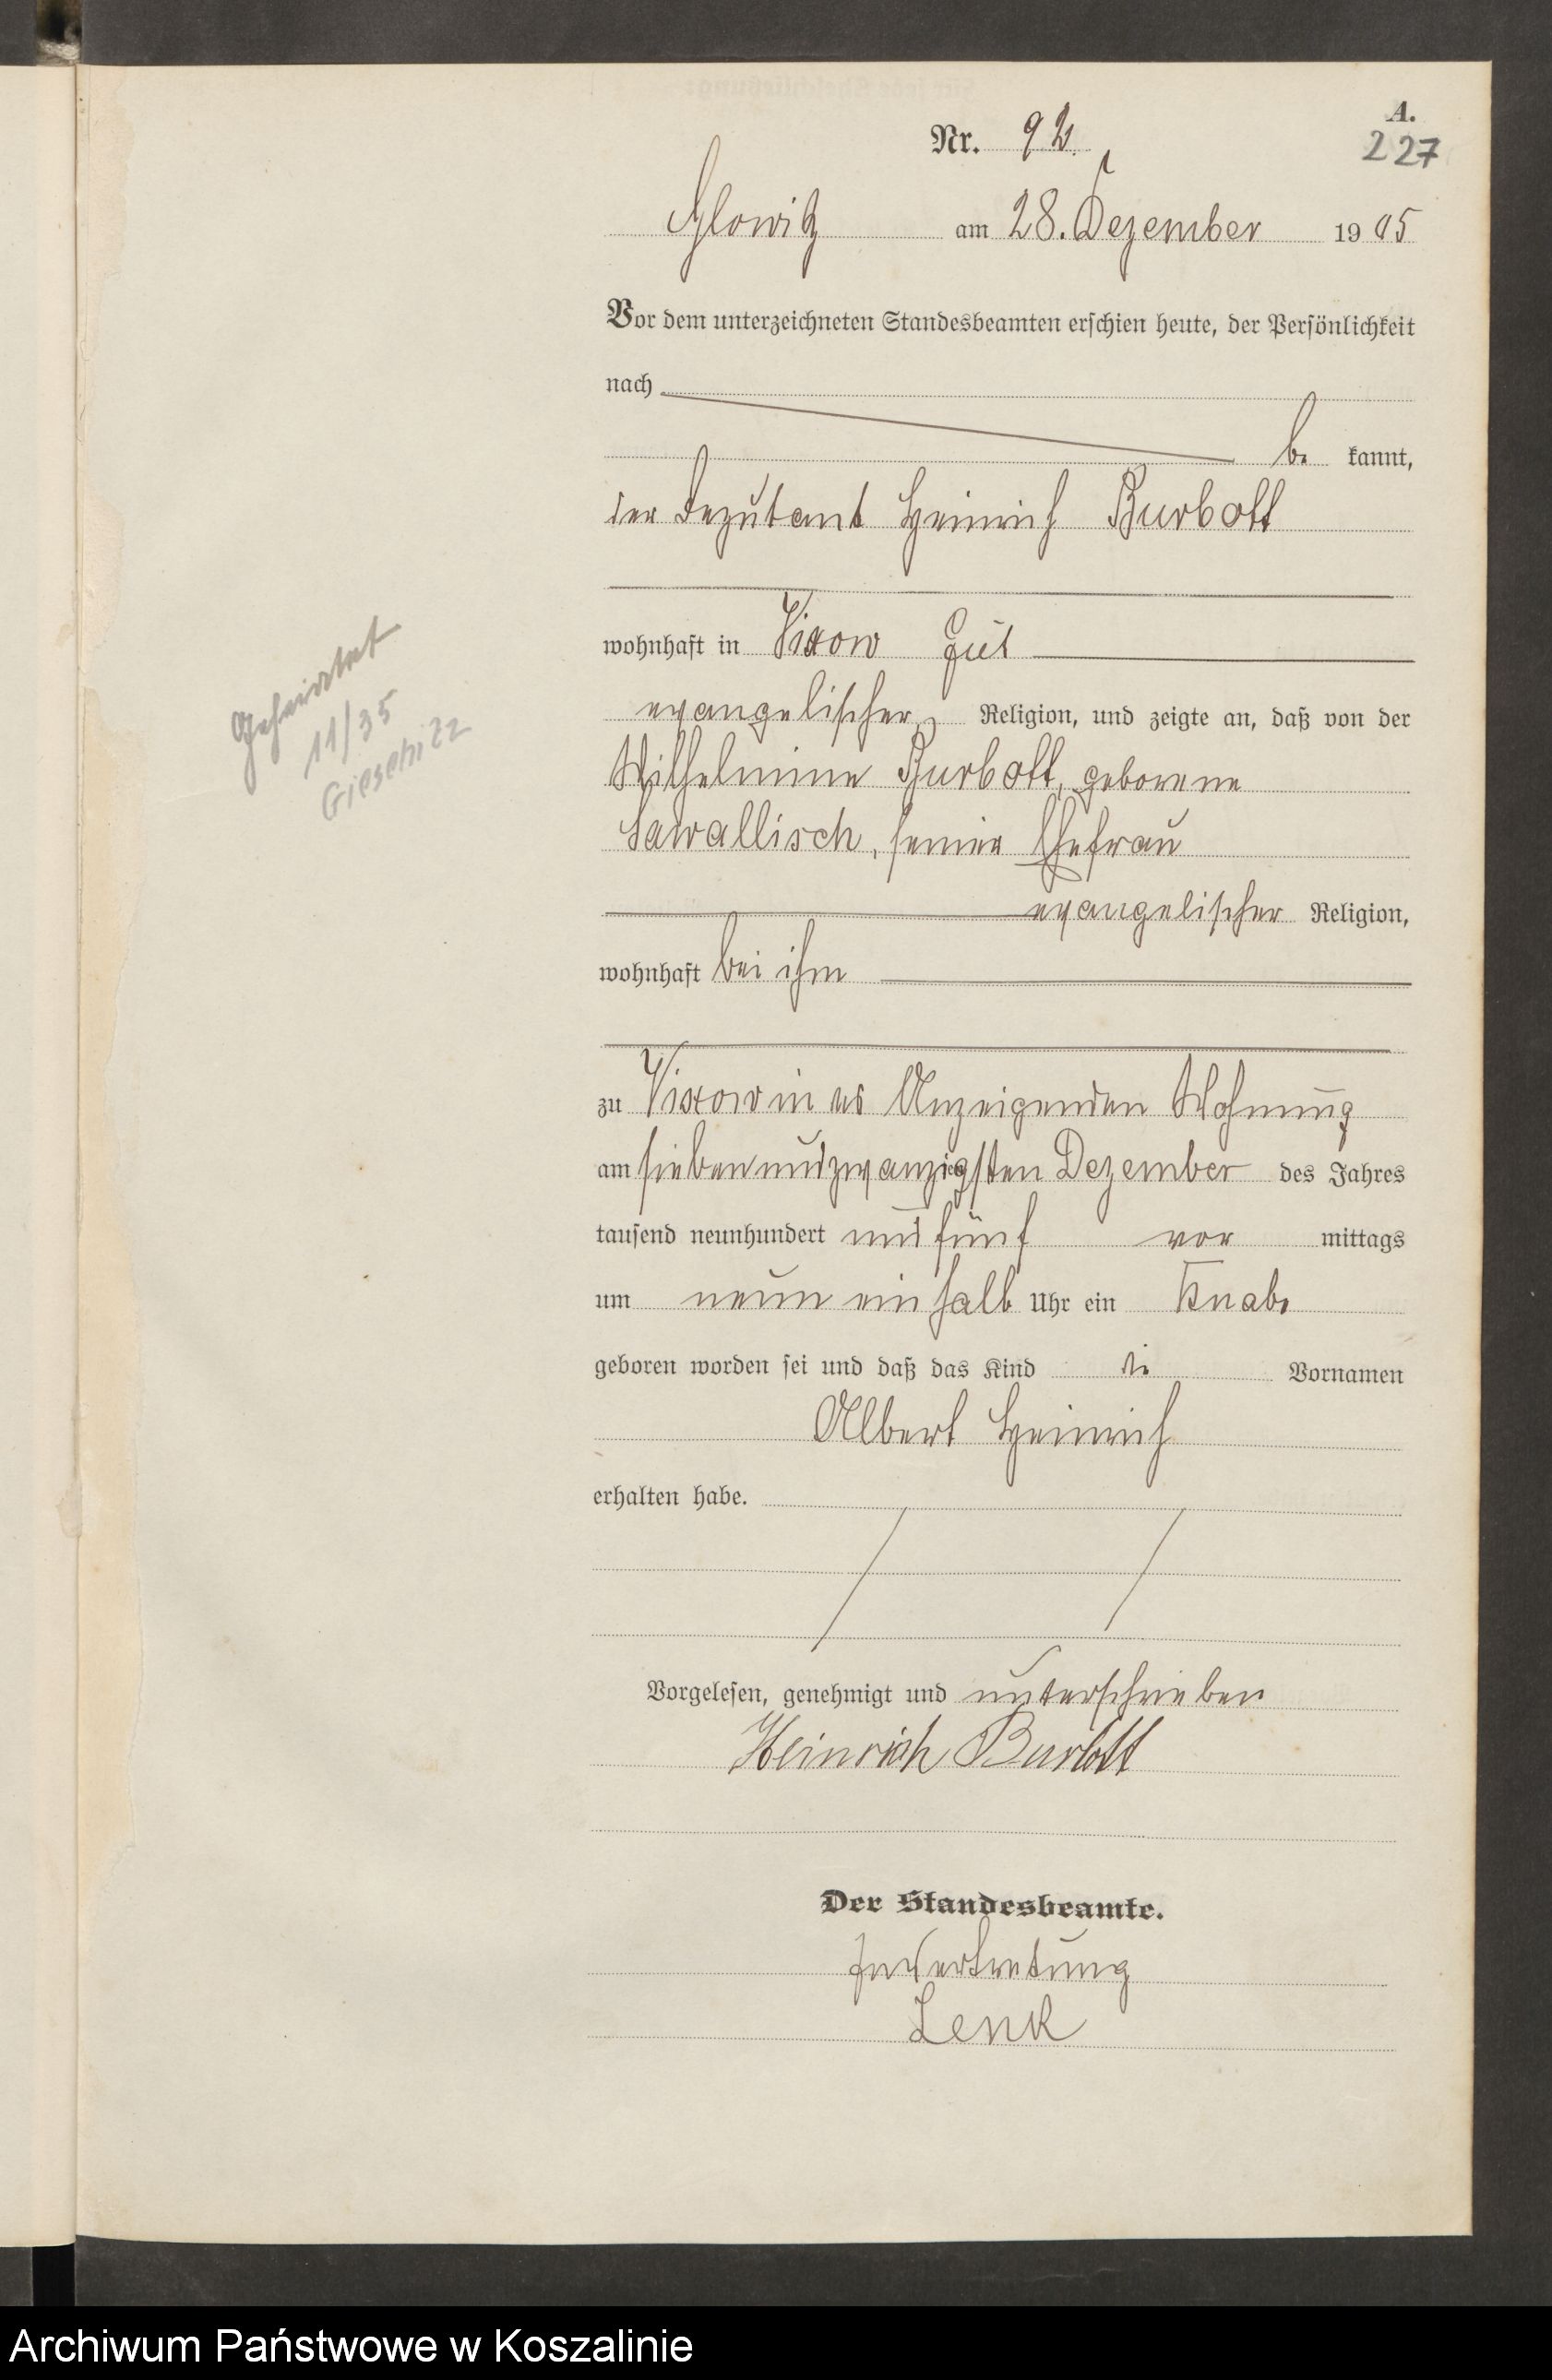 A.
Nr. 92.
227
Glowitz am 28. Dezember 1905
Vor dem unterzeichneten Standesbeamten erschien heute, der Persönlichkeit
nach
be kannt,
der Deputant Heinrich Burbott
wohnhaft in Vixow Gut
evangelischer Religion, und zeigte an, daß von der
Wilhelmine Burbott, geborene
Sawallisch, seiner Ehefrau
evangelischer Religion,
wohnhaft bei ihm
zu Vixow in des Anzeigenden Wohnung
am siebenundzwanzigsten Dezember des Jahres
tausend neunhundert und fünf vor mittags
um neun ein halb Uhr ein Knabe
geboren worden sei und daß das Kind die Vornamen
Albert Heinrich
erhalten habe.
Vorgelesen, genehmigt und unterschrieben
Heinrich Burbott
Der Standesbeamte.
In Vertretung
Lenk
Geheiratet
11/35
Giesebitz
Archiwum Państwowe w Koszalinie